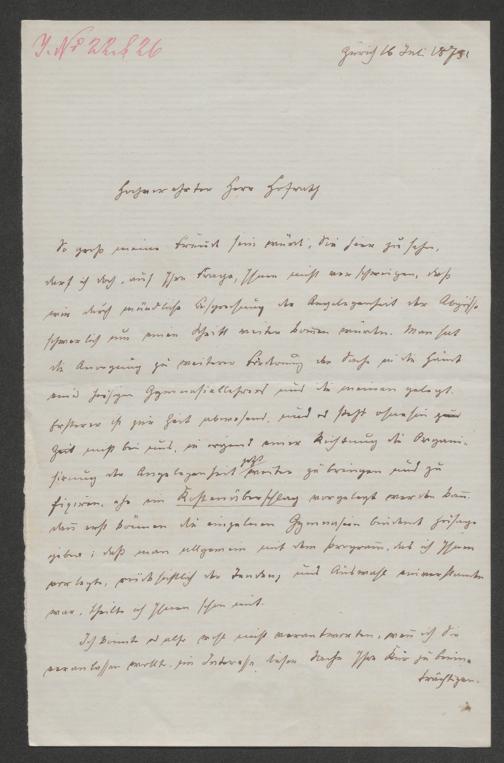 J. No 22.826
Zürich 16 Jul. 1873
Hochverehrter Herr Hofrath
So groß meine Freude sein würde, Sie hier zu sehn,
darf ich doch, auf Ihre Frage, Ihnen nicht verschweigen, daß
wir durch mündliche Besprechung die Angelegenheit der Abgüsse
schwerlich um einen Schritt weiter bringen würden. Man hat
die Anregung zu weiterer Förderung der Sache in die Hände
eines hiesigen Gymnasiallehrers und die meinen gelegt.
Ersterer ist zur Zeit abwesend, und es steht ohnehin zur
Zeit nicht bei uns, in irgend einer Richtung die Organi-
sirung der Angelegenheit jetzt weiter zu bringen und zu
figiren, ehe ein Kostenüberschlag vorgelegt werden kann.
dann erst können die einzelnen Gymnasien bindende Zusage
geben; daß man allgemein mit dem Programm, das ich Ihnen
vorlegte, rücksichtlich der Tendenz und Auswahl einverstanden
war, theilte ich Ihnen schon mit.
Ich könnte es also wohl nicht verantworten, wenn ich Sie
veranlassen wollte, im Interesse dieser Sache Ihre Kur zu beein-
trächtigen.